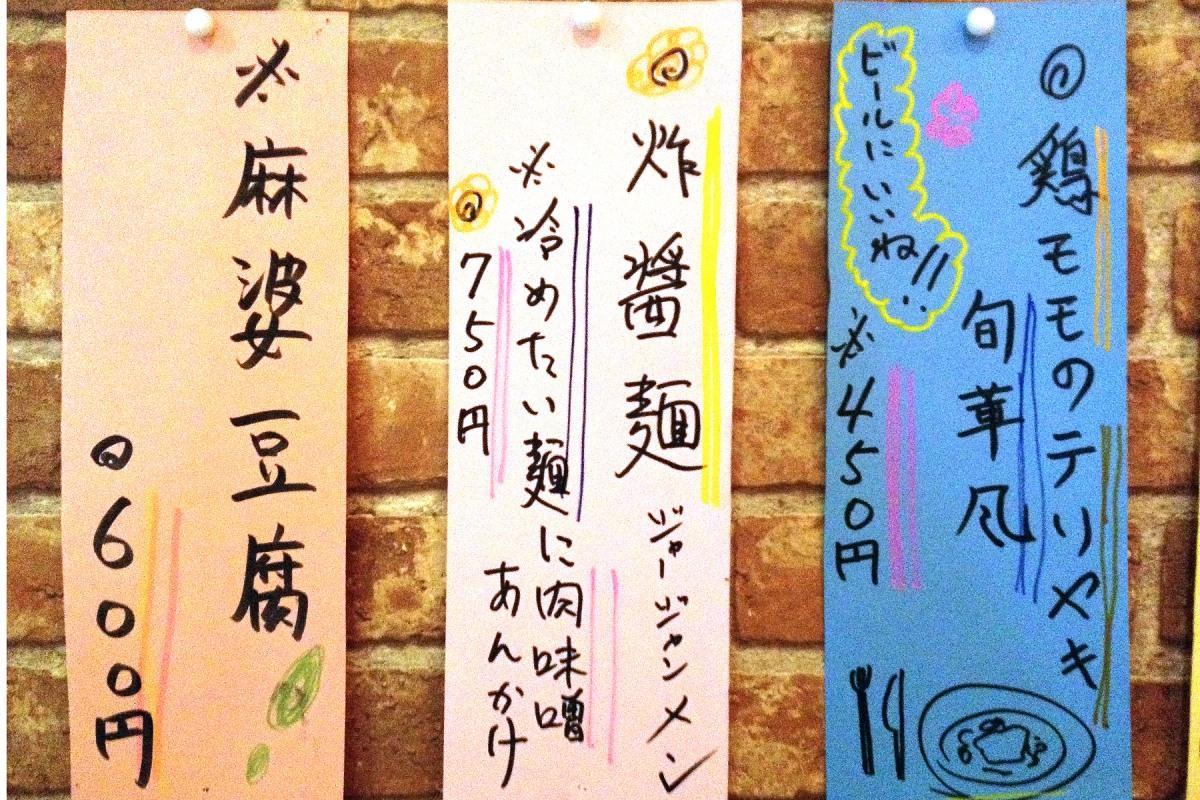 ◎鶏モモのテリヤキ
旬華风
ビールにいいね!!
※450円
◎炸醤麺 ジャージャンメン
※冷めたい麺に肉味噌
あんかけ
◎750円
※麻婆豆腐
◎600円